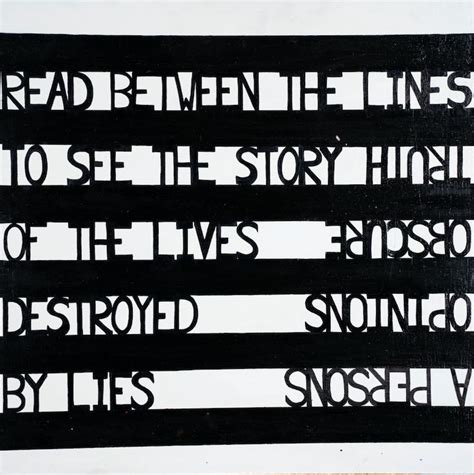 READ BETWEEN THE LINES
TO SEE THE STORY
OF THE LIVES
DESTROYED
BY LIES
A PERSONS
OPINIONS
OBSCURE
TRUTH